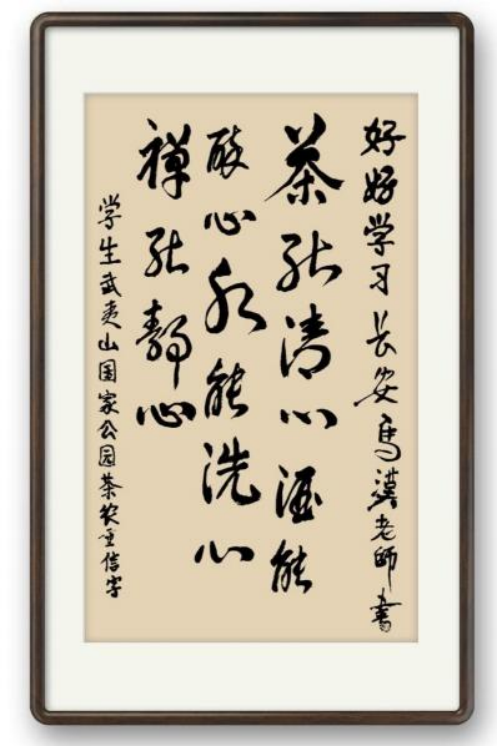 好好学习长安馬漢老師書
茶能清心酒能
醉心水能洗心
禅能静心
学生武夷山国家公园茶农重信字